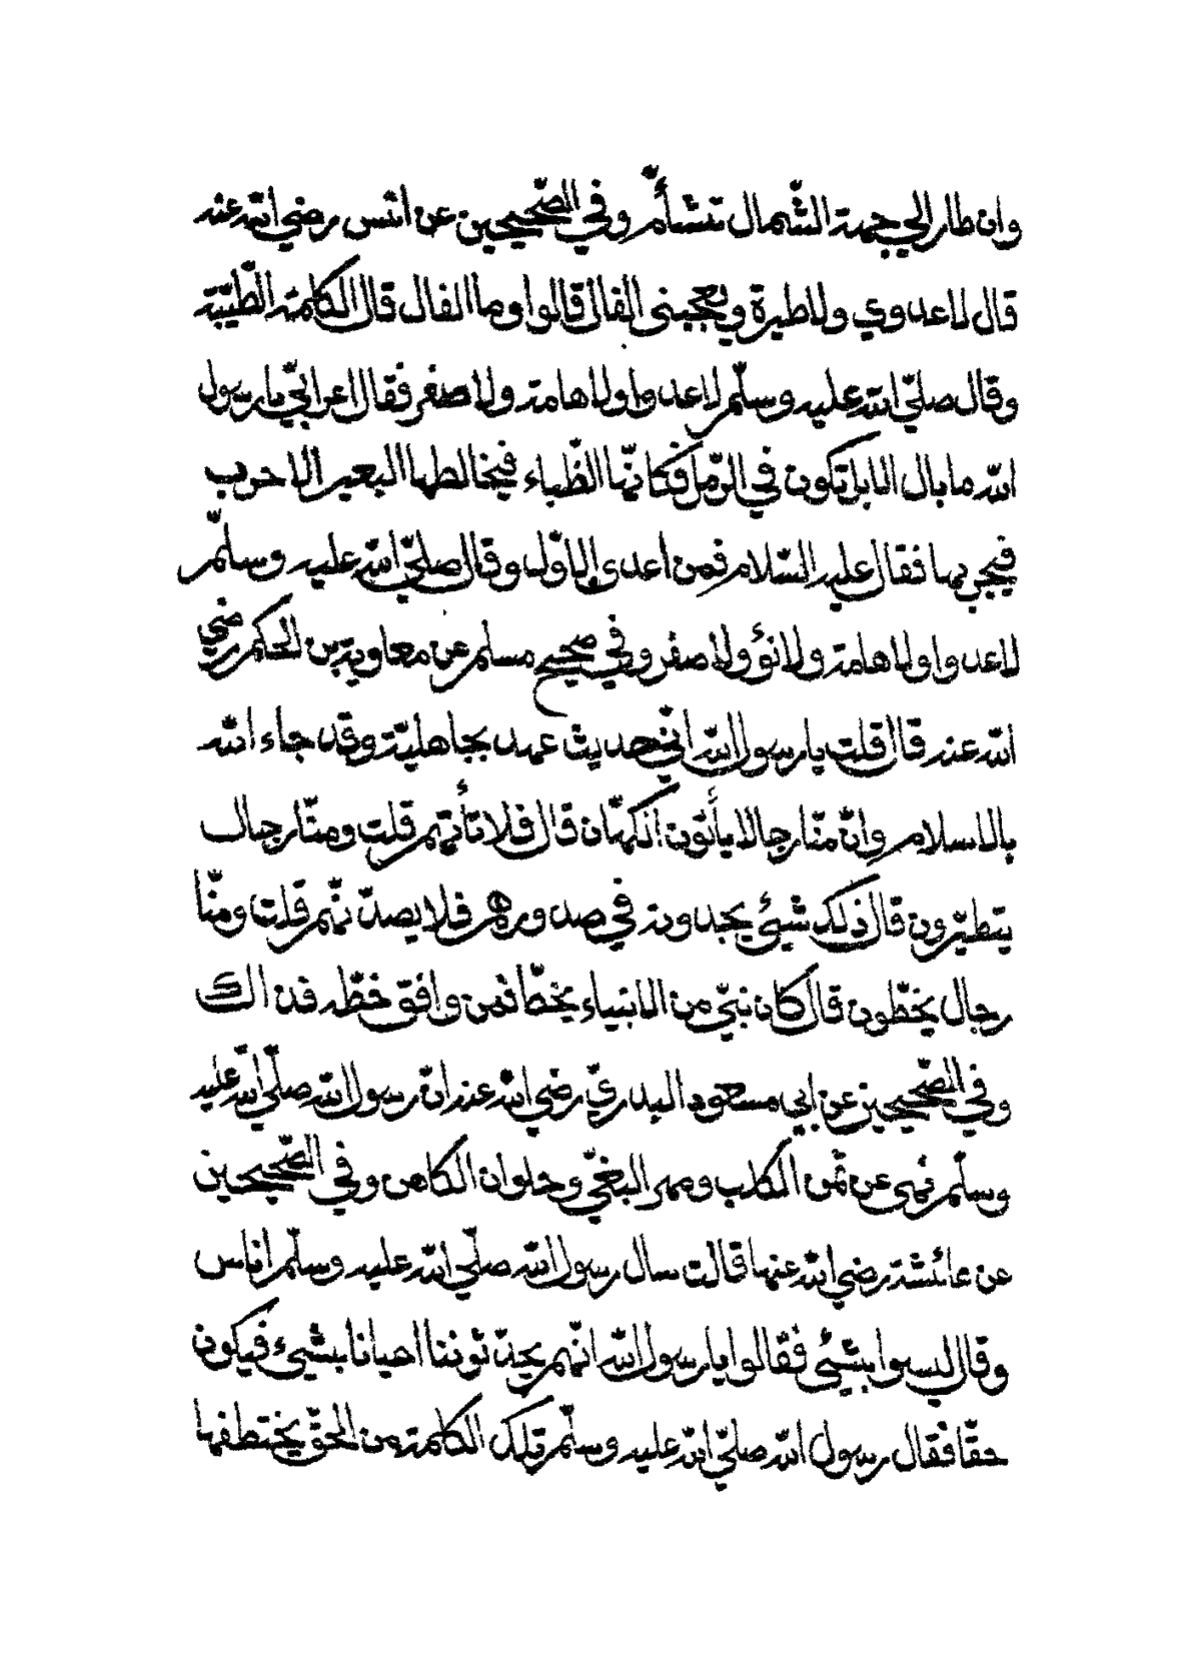 وان طار الي جهة الشّمال تشأّم وفي الصّحيحين عن انس رضي الله عنه
قال لا عدوي ولا طيرة ويعجبني الفال قالوا وما الفال قال الكلمة الطّيّبة
وقال صلّي الله عليه وسلّم لا عدوا ولا هامة ولا صفر فقال اعرابيّ يا رسول
الله ما بال الابل تكون في الرّمل فكانّها الظّباء فيخالطها البعير الاجرب
فيجربها فقال عليه السّلام فمن اعدى الاوّل وقال صلّي الله عليه وسلّم
لا عدوا ولا هامة ولا نؤ ولا صفر وفي صحيح مسلم عن معاوية بن الحكم رضي
الله عنه قال قلت يا رسول الله انّي حديث عهد بجاهليّة وقد جاء الله
بالاسلام وانّ منّا رجالا يأتون الكهّان قال فلا تأتهم قلت ومنّا رجال
يتطيّرون قال ذلك شيئ يجدونه في صدورهم فلا يصدّنّهم قلت ومنّا
رجال يخطّون قال كان نبيّ من الانبياء يخطّ فمن وافق خطّه فذالك
وفي الصّحيحين عن ابي مسعود البدريّ رضي الله عنه انّ رسول الله صلّي الله عليه
وسلّم نهى عن ثمن الكلب ومهر البغيّ وحلوان الكاهن وفي الصّحيحين
عن عائشة رضي الله عنها قالت سال رسول الله صلّي الله عليه وسلّم اناس
وقال ليسوا بشيئ فقالوا يا رسول الله انّهم يحدّثوننا احيانا بشيئ فيكون
حقّا فقال رسول الله صلّي الله عليه وسلّم تلك الكلمة من الحقّ يختطفها